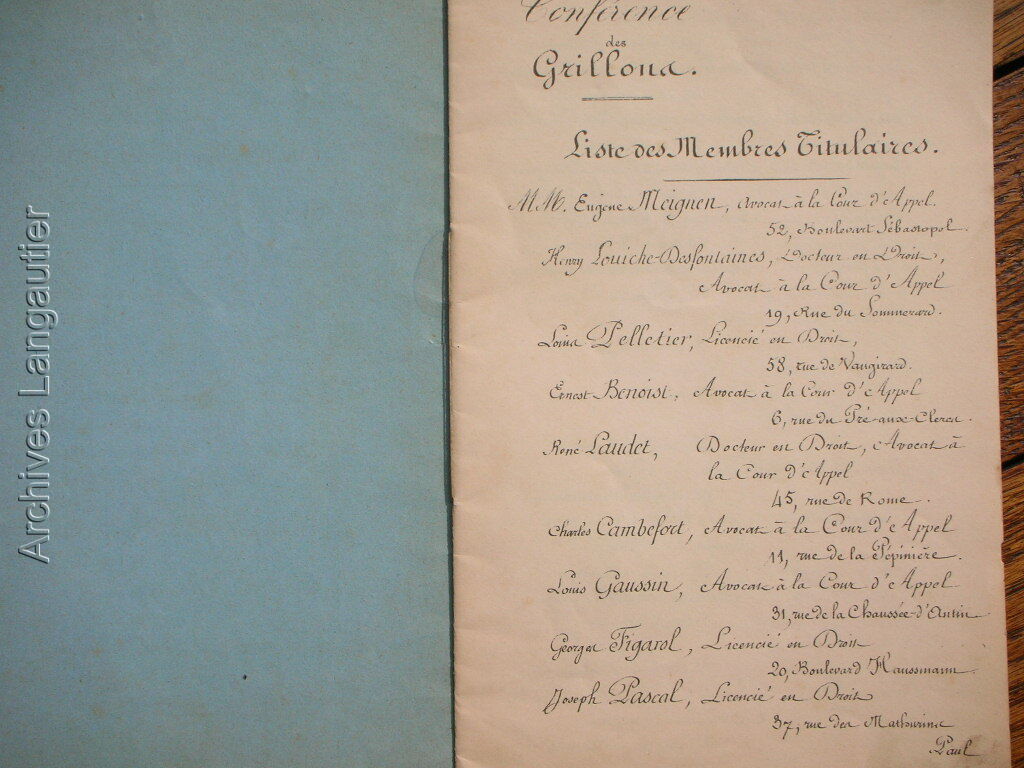 Archives Langautier
Conférence
des
Grillons.
Liste des Membres Titulaires.
MM. Eugène Meignen, Avocat à la Cour d'Appel.
52, Boulevart Sébastopol.
Henry Louiche-Desfontaines, Docteur en Droit,
Avocat à la Cour d'Appel
19, Rue du Sommerard.
Louis Pelletier, Licencié en Droit,
58, rue de Vaugirard.
Ernest Benoist, Avocat à la Cour d'Appel
6, rue du Pré-aux-Clercs
René Laudet, Docteur en Droit, Avocat à
la Cour d'Appel
45, rue de Rome.
Charles Cambefort, Avocat à la Cour d'Appel
11, rue de la Pépinière.
Louis Gaussin, Avocat à la Cour d'Appel
31, rue de la Chaussée-d'Antin
Georges Figarol, Licencié en Droit
20, Boulevard Haussmann
Joseph Pascal, Licencié en Droit
37, rue des Mathurins
Paul